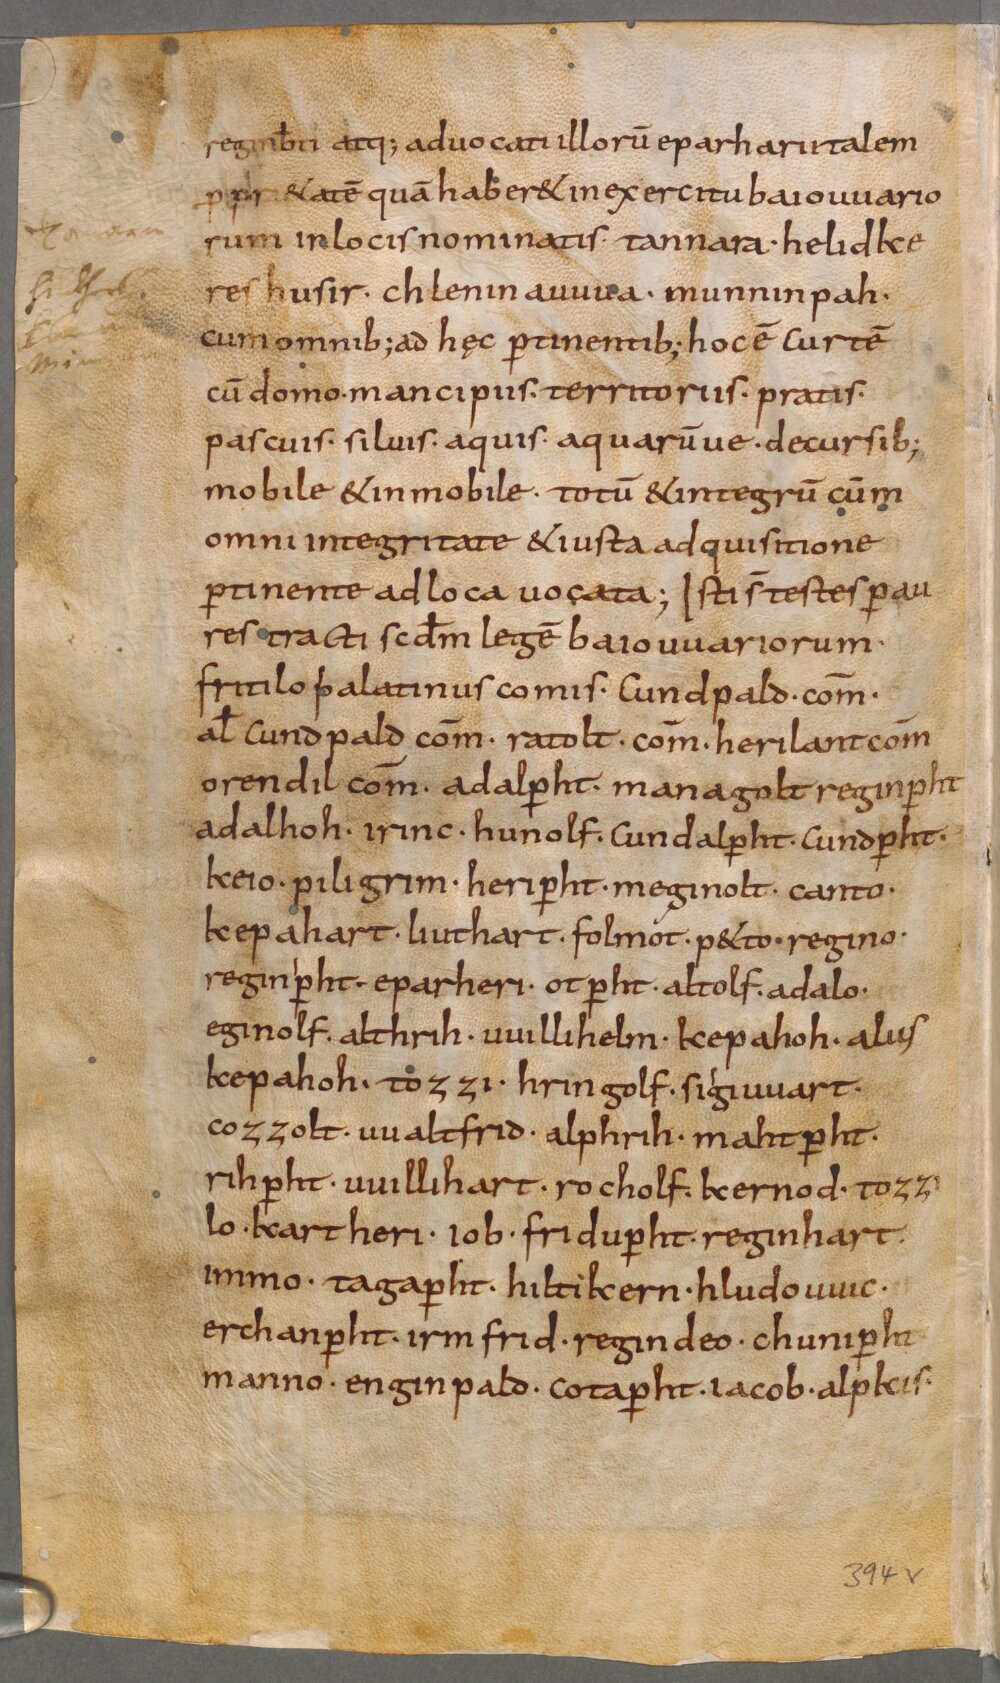 reginb̄ti atq; aduocati illorū eparharii talem
p̱pri&atē quā haber& in exercitu baiouuario
rum in locis nominatis· tannara· helidke
res husir· chlenin auuua· munninpah·
cum omnib; ad hęc ꝑtinentib; hoc ē curtē
cū domo· mancipiis· territoriis· pratis·
pascuis· siluis· aquis· aquarūue· decursib;
mobile & inmobile· totū & integrū cūm
omni integritate & iusta adquisitione
ꝑtinente ad loca uocata; Isti s̄ testes ꝑ au
res tracti scdm̄ legē baiouuariorum·
fritilo palatinus comis· Cundpald· com̄·
al̄ Cundpald com̄· ratolt· com̄· herilant com̄
orendil com̄· adalꝑht· managolt reginꝑht
adalhoh· irinc· hunolf· Cundalꝑht· Cundꝑht·
keio· piligrim· heriꝑht· meginolt· canto·
kepahart· liuthart· folmót· p&to· regino·
reginꝑht· eparheri· otꝑht· altolf· adalo·
eginolf· althrih· uuillihelm· kepahoh· alius
kepahoh· tozzi· hringolf· sigiuuart·
cozzolt· uualtfrid· alphrih· mahtꝑht·
rihꝑht· uuillihart· rocholf· kernod· tozzi
lo· kartheri· iob· friduꝑht· reginhart·
immo· tagaꝑht· hiltikern· hludouuic·
erchanꝑht· irmfrid· regindeo· chuniꝑht
manno· enginpald· cotaꝑht· iacob· alpkis·
394 v